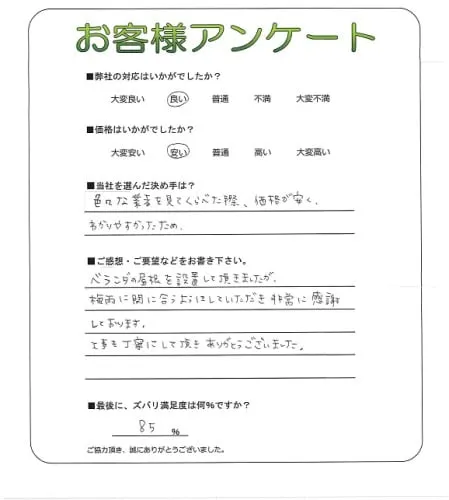 お客様アンケート
■弊社の対応はいかがでしたか？
大変良い 良い 普通 不満 大変不満
■価格はいかがでしたか？
大変安い 安い 普通 高い 大変高い
■当社を選んだ決め手は？
色々な業者を見てくらべた際、価格が安く、
わかりやすかったため。
■ご感想・ご要望などをお書き下さい。
ベランダの屋根を設置して頂きましたが、
梅雨に間に合うようにしていただき非常に感謝
しております。
工事も丁寧にして頂きありがとうございました。
■最後に、ズバリ満足度は何％ですか？
85 ％
ご協力頂き、誠にありがとうございました。